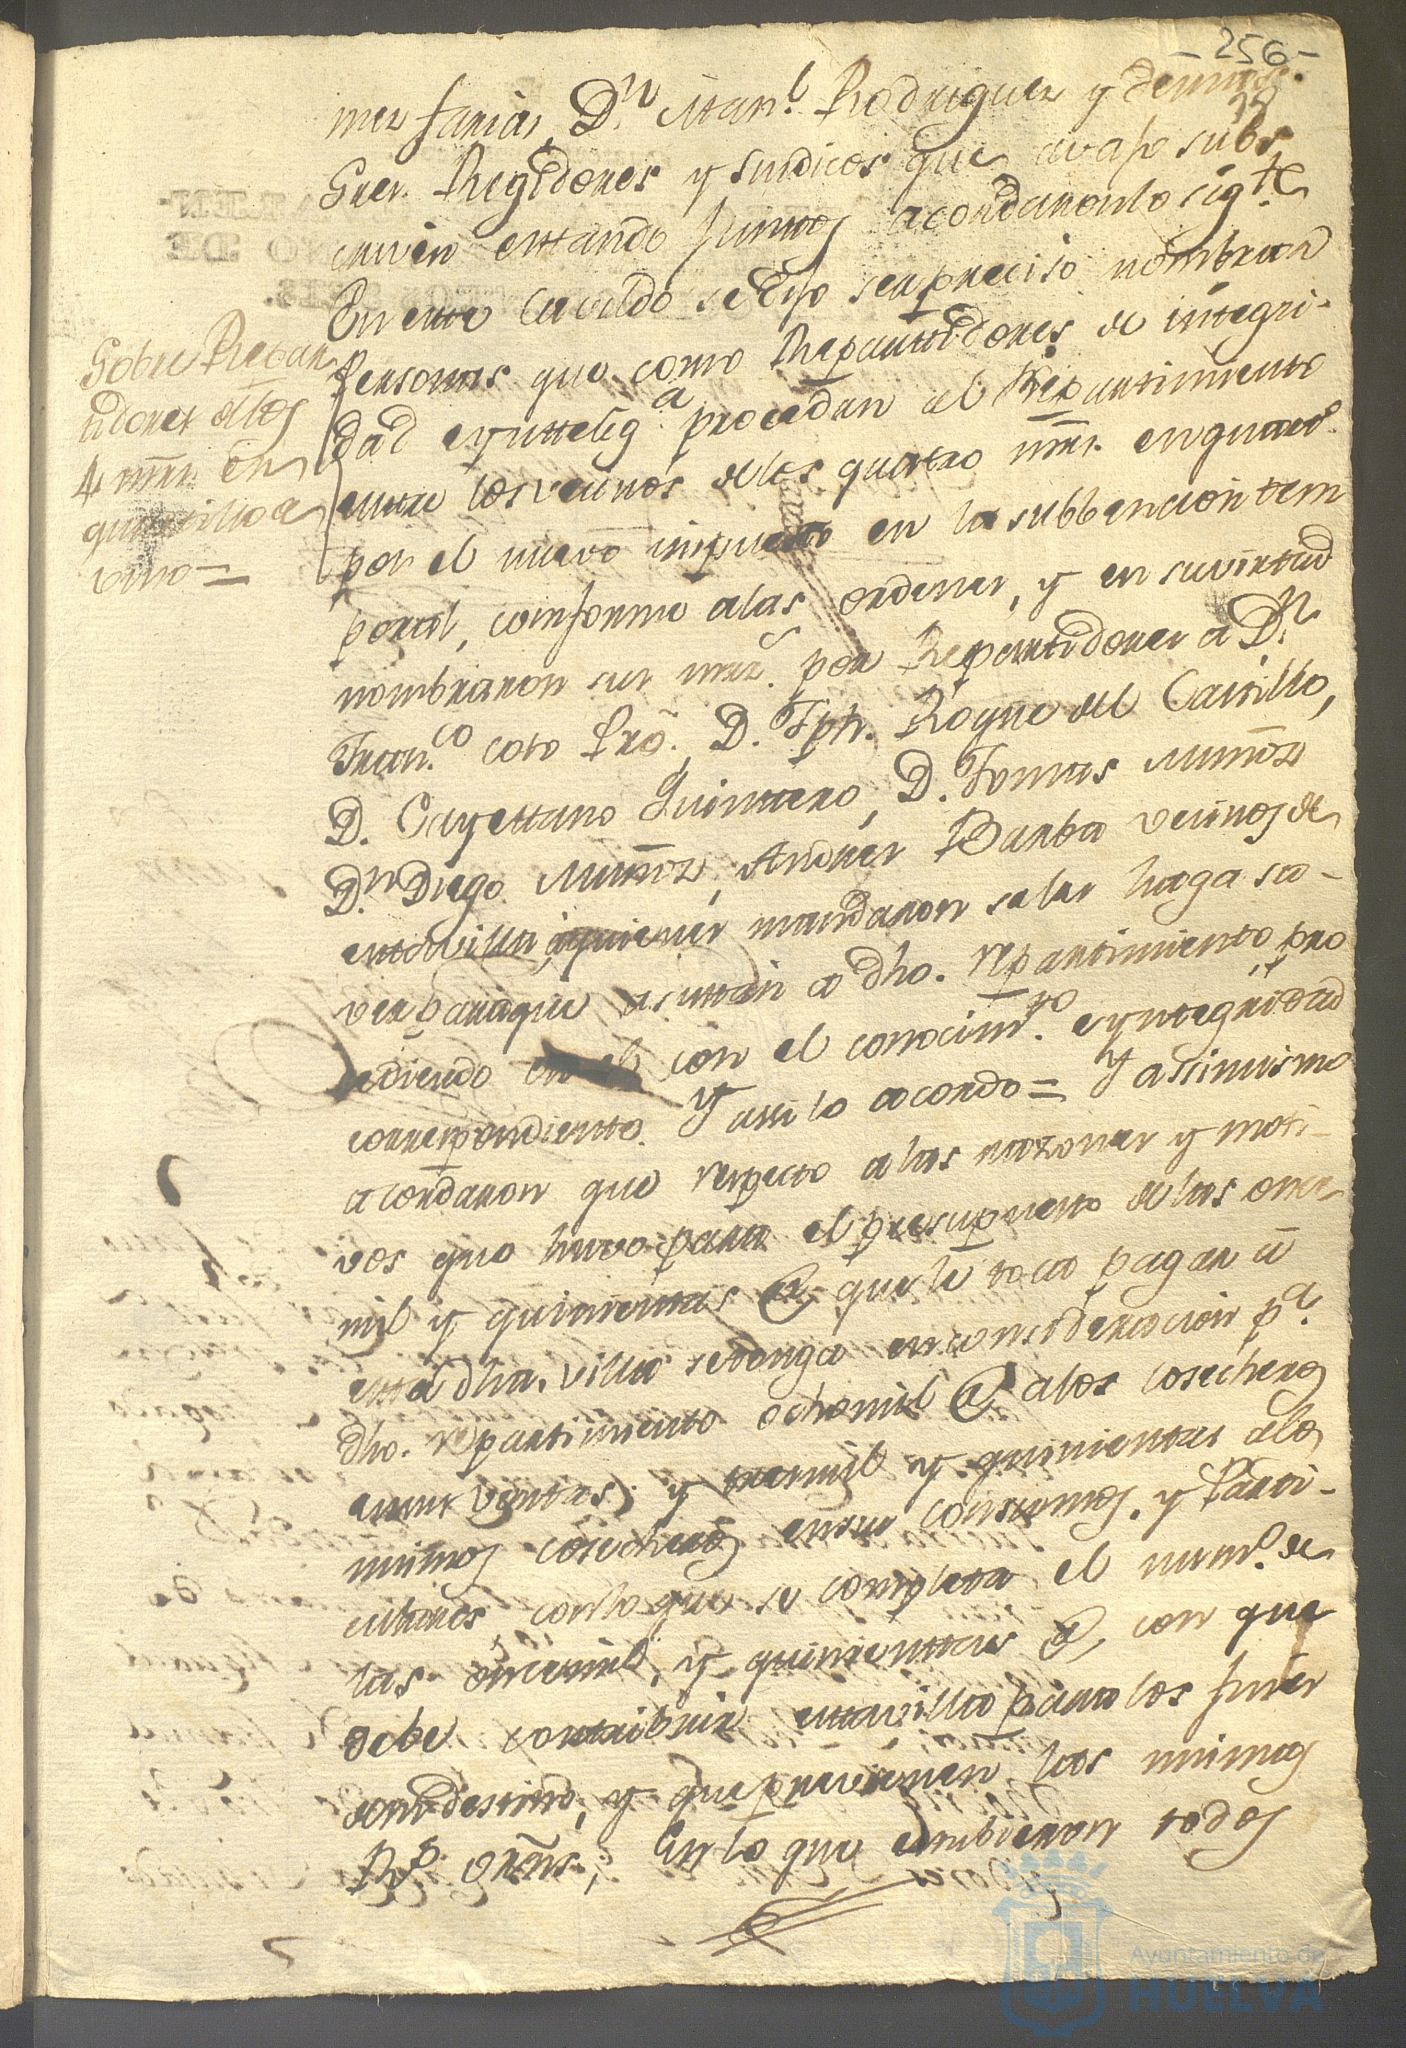 -256-
mez farias, D.n Man.l Rodriguez y demas
Sres. Regidores y sindicos que avajo subs
crivén estando juntos acordaron lo sig.te
Sobre Repar
tidores de los
4 mrs. en
quartillo a
vino =
En este Cavildo se dijo ser preciso nombrar
Personas que como Repartidores de integri-
dad e yntelig.a procedan al Repartimiento
entre los vecinos de los quatro mrs. en quart.o
por el nuevo impuesto en la subbencion tem
poral, comforme a las ordenes, y en su virtud
nombraron sus mrz. por Repartidores a D.n
Fran.co coto Pro., D. Jph. Roque del Castillo,
D. Cayettano Quinttero, D. Tomas Muñoz
D.n Diego Muñoz, Andres Barba vecinos de
esta villa, a quienes mandaron se les haga sa-
ver para que asistan a dho. repartimiento, pro
cediendo en el con el conocim.to e yntegridad
correspondiente. Y assi lo acordo = Y assimismo
acordaron que respecto a las razones y moti-
vos que huvo para el presupuesto de las once
mil y quinientas @ que le toca pagar à
esta dha. villa se tenga en consideracion p.a
dho. repartimiento ocho mil @ a los cosecheros
en sus ventas, y tres mil y quinientas a los
mismos cosecheros en sus consumos, y Parti-
culares, con lo que se completa el num.o de
las once mil, y quinientas @ con que
debe contribuir esta villa para los fines
de su destino, y que previenen las mismas
R.s orñs; En lo que combieron todos
Ayuntamiento de
HUELVA